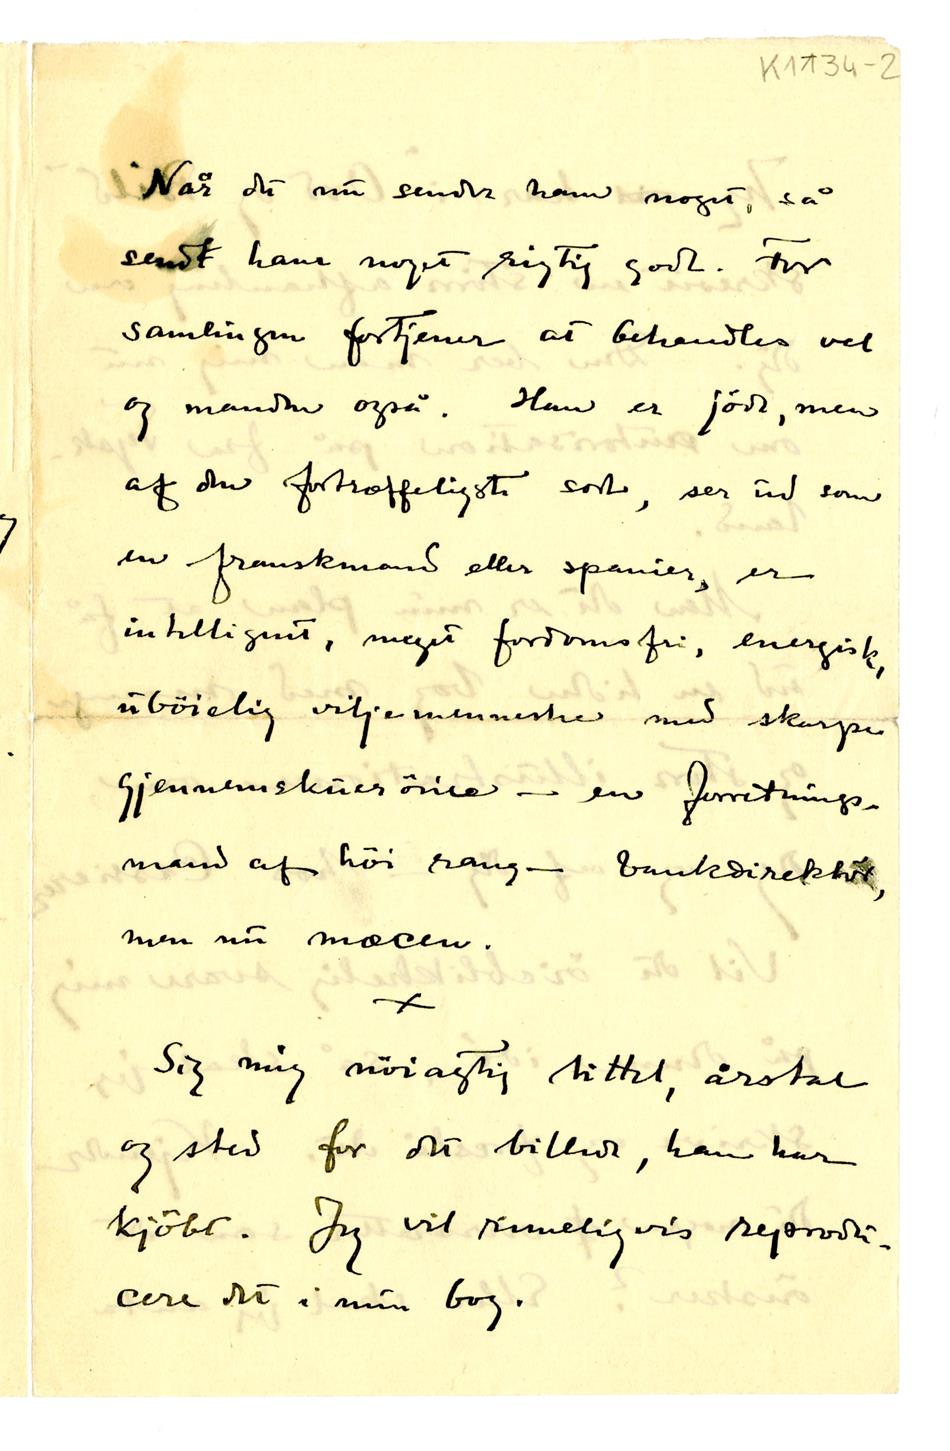 K1π34-2
Når du nu sender ham noget, så
sendt ham noget rigtig godt. For
samlingen fortjener at behandles vel
og manden også. Han er jöde, men
af den fortræffeligste sort, ser ud som
en franskmand eller spanier, er
intelligent, meget fordomsfri, energisk,
uböielig viljemenneske med skarpe
gjennemskueröine — en forretnings-
mand af höi rang — bankdirektör,
men nu mæcen.
x
Sig mig nöiagtig tittel, årstal
og sted for det billede, han har
kjöbt. Jeg vil rimeligvis reprodu-
cere det i min bog.